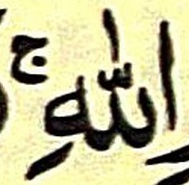 اللّٰهِ ۚ